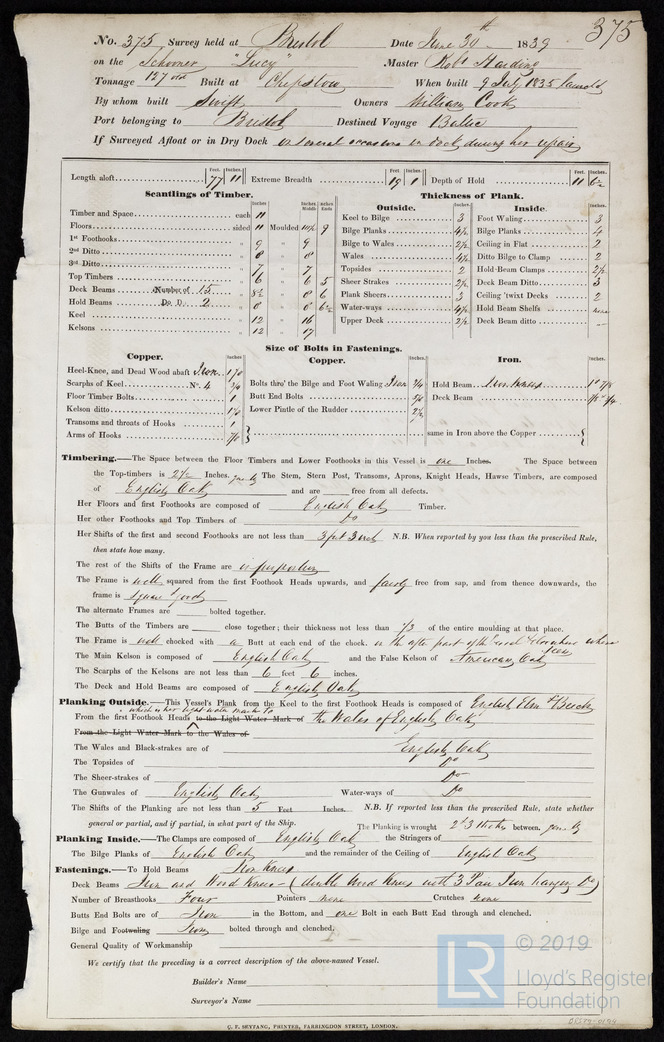 375
No. 375 Survey held at Bristol Date June 30th 1839
on the Schooner "Lucy" Master Robt Harding
Tonnage 127 Built at Chepstow When built 9 July 1835 launched
By whom built Swift Owners William Cook
Port belonging to Bristol Destined Voyage Baltic
If Surveyed Afloat or in Dry Dock on several occasions in dock during her repairs
Feet. Inches. Feet. Inches. Feet. Inches.
Length aloft 77 11 Extreme Breadth 19 1 Depth of Hold 11 6½
Scantlings of Timber. Thickness of Plank.
Inches Inches Middle Inches Ends Outside. Inches. Inside. Inches.
Timber and Space each 11 Keel to Bilge 3 Foot Waling 3
Floors sided 11 Moulded 10½ 9 Bilge Planks 4½ Bilge Planks 4
1st Foothooks 9 " 9 Bilge to Wales 2½ Ceiling in Flat 2
2nd Ditto 8 " 8 Wales 4½ Ditto Bilge to Clamp 2
3rd Ditto 7 " 7 Topsides 2 Hold Beam Clamps 2½
Top Timbers 6 " 6 5 Sheer Strakes 2½ Deck Beam Ditto 3
Deck Beams Number of 15 8½ " 8 6 Plank Sheers 3 Ceiling 'twixt Decks 2
Hold Beams Do. D. 2 8 " 8 6½ Water-ways 4½ Hold Beam Shelfs none
Keel 12 " 16 Upper Deck 2½ Deck Beam ditto —
Kelsons 12 " 17
Size of Bolts in Fastenings.
Copper. Inches. Copper. Inches. Iron. Inches.
Heel-Knee, and Dead Wood abaft Iron
Scarphs of Keel No. 4 ¾ Bolts thro' the Bilge and Foot Waling Iron ¾ Hold Beam Iron Knees 1 & 7/8
Floor Timber Bolts 1 Butt End Bolts 5/8 Deck Beam
Kelson ditto 1⅛ Lower Pintle of the Rudder 2½
Transoms and throats of Hooks 1
Arms of Hooks 7/8 same in Iron above the Copper
Timbering.—The Space between the Floor Timbers and Lower Foothooks in this Vessel is one Inches. The Space between
the Top-timbers is 2½ Inches. genlly The Stem, Stern Post, Transoms, Aprons, Knight Heads, Hawse Timbers, are composed
of English Oak and are free from all defects.
Her Floors and first Foothooks are composed of English Oak Timber.
Her other Foothooks and Top Timbers of Do
Her Shifts of the first and second Foothooks are not less than 3 feet 3 inch N.B. When reported by you less than the prescribed Rule,
then state how many.
The rest of the Shifts of the Frame are in proportion
The Frame is well squared from the first Foothook Heads upwards, and fairly free from sap, and from thence downwards, the
frame is square & good
The alternate Frames are bolted together.
The Butts of the Timbers are close together; their thickness not less than 1/3 of the entire moulding at that place.
The Frame is well chocked with a Butt at each end of the chock. in the after part of the vessel elsewhere where seen
The Main Kelson is composed of English Oak and the False Kelson of American Oak
The Scarphs of the Kelsons are not less than 6 feet 6 inches.
The Deck and Hold Beams are composed of English Oak
Planking Outside.—This Vessel's Plank from the Keel to the first Foothook Heads is composed of English Elm & Beech
which is her light water mark to
From the first Foothook Heads to the Light Water Mark of the Wales of English Oak
From the Light Water Mark to the Wales of
The Wales and Black-strakes are of English Oak
The Topsides of Do
The Sheer-strakes of Do
The Gunwales of English Oak Water-ways of Do
The Shifts of the Planking are not less than 5 Feet Inches. N.B. If reported less than the prescribed Rule, state whether
general or partial, and if partial, in what part of the Ship. The Planking is wrought 2 & 3 Strakes between. genlly
Planking Inside.—The Clamps are composed of English Oak the Stringers of
The Bilge Planks of English Oak and the remainder of the Ceiling of English Oak
Fastenings.—To Hold Beams Iron Knees
Deck Beams Iron and Wood Knees (double Wood Knees with 3 Pair Iron hanging Do)
Number of Breasthooks Four Pointers none Crutches none
Butts End Bolts are of Iron in the Bottom, and one Bolt in each Butt End through and clenched.
Bilge and Footwaling Iron bolted through and clenched.
General Quality of Workmanship
We certify that the preceding is a correct description of the above-named Vessel.
Builder's Name
Surveyor's Name
G. F. SEYFANG, PRINTER, FARRINGDON STREET, LONDON.
LR © 2019
Lloyd's Register
Foundation